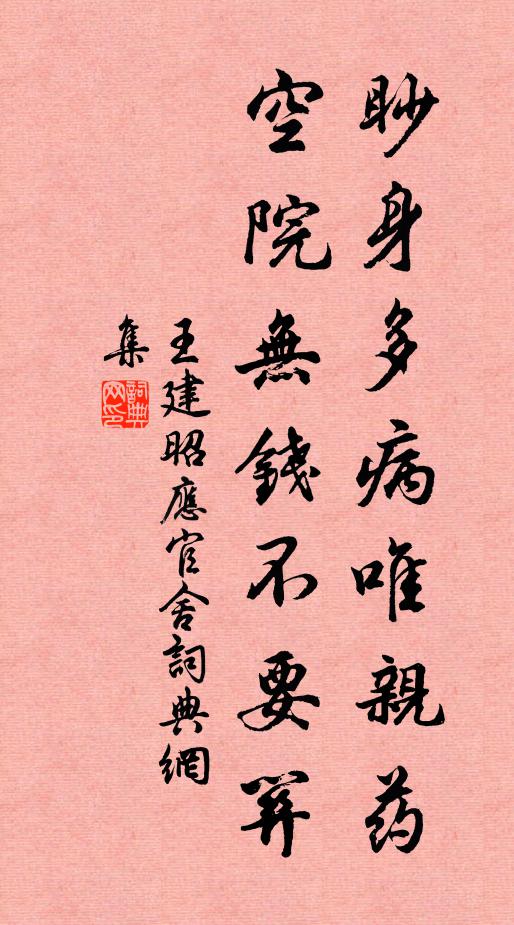 眇身多病唯親药
空院無錢不要關
王建昭應官舍詞典網
集
詞典
网印